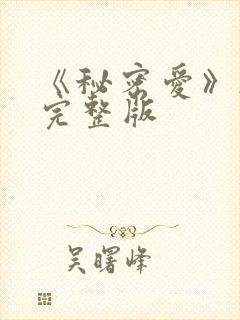 《秘密爱》
完整版
吴曙峰